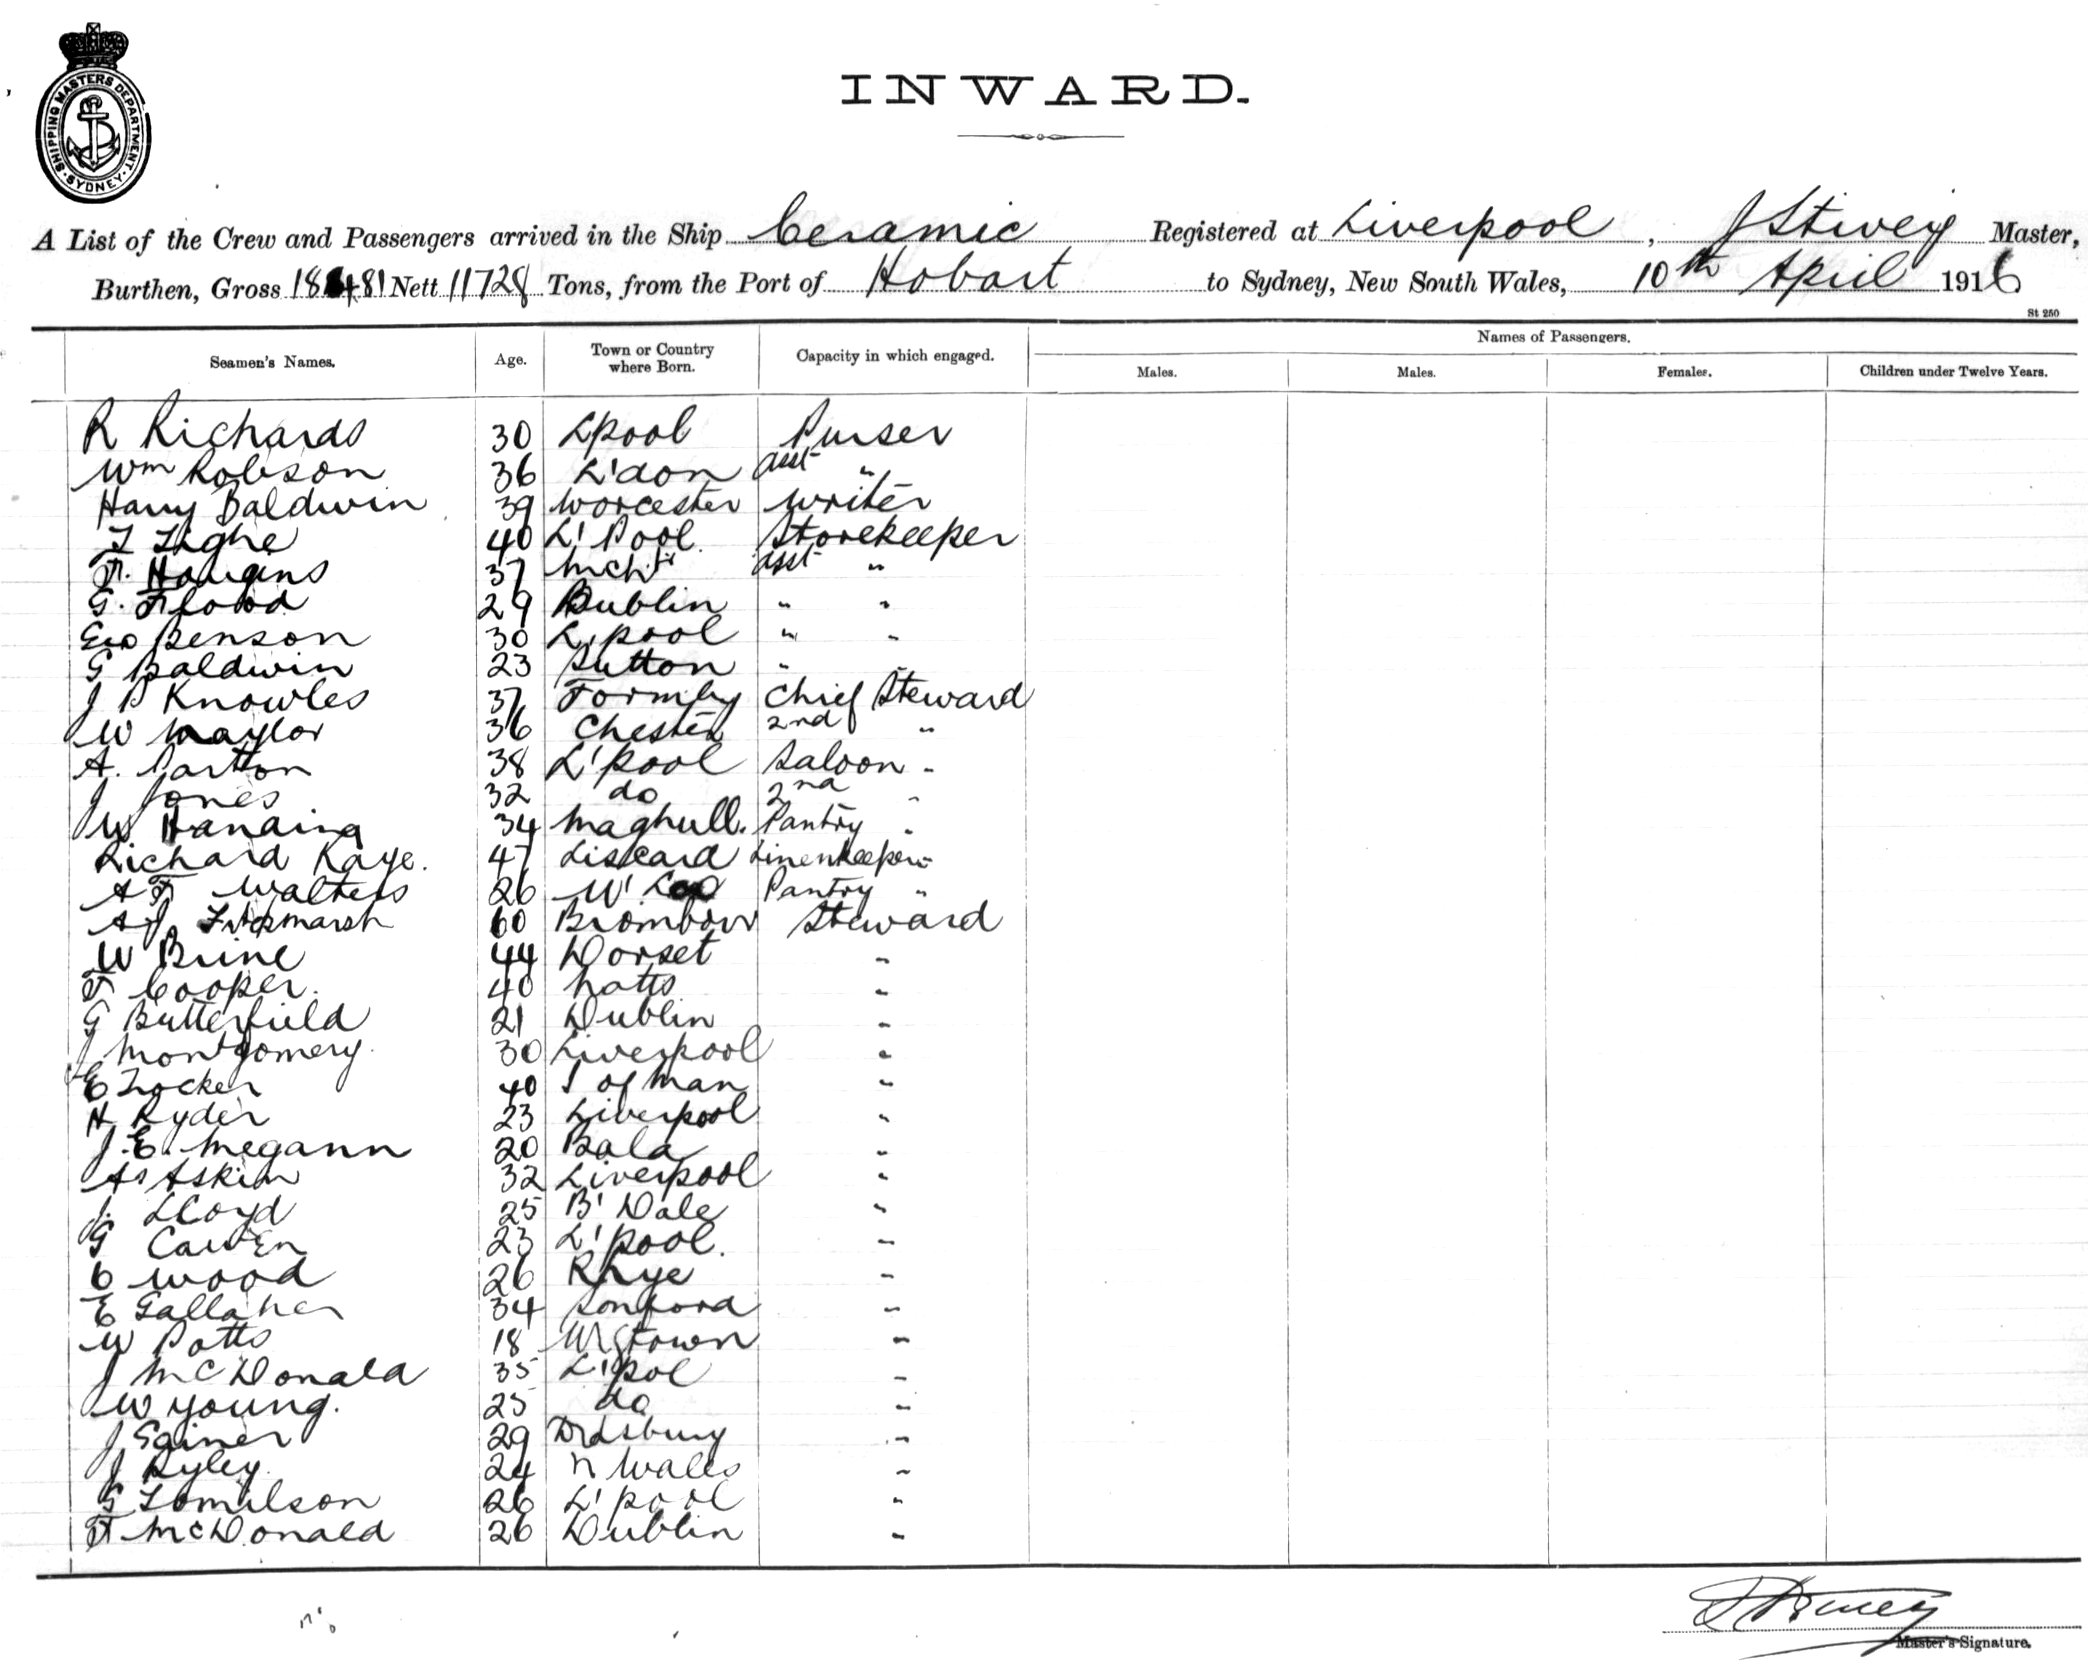 SHIPPING MASTERS DEPARTMENT · SYDNEY ·
INWARD.
A List of the Crew and Passengers arrived in the Ship Ceramic Registered at Liverpool , J Stivey Master,
Burthen, Gross 18481 Nett 11728 Tons, from the Port of Hobart to Sydney, New South Wales, 10th April 1916
St 250
Seamen's Names. Age. Town or Country where Born. Capacity in which engaged. Names of Passengers.
Males. Males. Females. Children under Twelve Years.
R Richards 30 Lpool Purser
Wm Robson 36 L'don asst "
Harry Baldwin 39 Worcester Writer
T Tighe 40 L'Pool. Storekeeper
F. 37 asst "
G. Flood 29 Dublin " "
Geo Benson 30 L'pool " "
G Baldwin 23 Sutton " "
J P Knowles 37 Formby Chief Steward
W Naylor 36 Chester 2nd "
A. Parton 38 L'pool Saloon "
J Jones 32 do 2nd "
W Handing 34 Maghull. Pantry "
Richard Kaye. 47 Liscard Linenkeeper "
A F Walters 26 Pantry "
A J 60 Steward
W Brine 44 Dorset "
F Cooper. 40 Notts "
G Butterfield 21 Dublin "
J Montgomery. 30 Liverpool "
E 40 I of Man "
H Ryder 23 Liverpool "
J. E. Megann 20 Bala "
As Askin 32 Liverpool "
J. Lloyd 25 B'Dale "
G Cawen 23 L'pool. "
C Wood 26 Rhye "
E Gallaher 34 "
W Potts 18 "
J McDonald 35 L'pol "
W Young. 25 do "
J Gainer 29 "
J Ryley. 24 N Wales "
G Tomilson 26 L'pool "
F McDonald 26 Dublin "
Master's Signature.